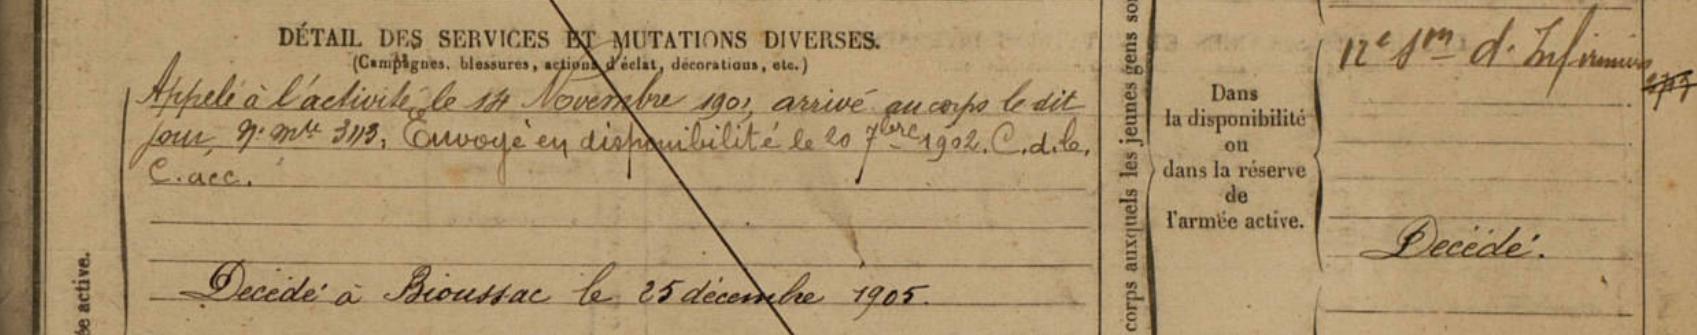 DÉTAIL DES SERVICES ET MUTATIONS DIVERSES.
(Campagnes, blessures, actions d'éclat, décorations, etc.)
Appelé à l'activité le 14 Novembre 1901, arrivé au corps le dit
jour, N° Mle 3113. Envoyé en disponibilité le 20 7bre 1902. C.d.b.
C. acc.
Décédé à Bioussac le 25 décembre 1905.
ée active.
corps auxquels les jeunes gens so
Dans
la disponibilité
ou
dans la réserve
de
l'armée active.
12e Son d'Infirmiers
Décédé.